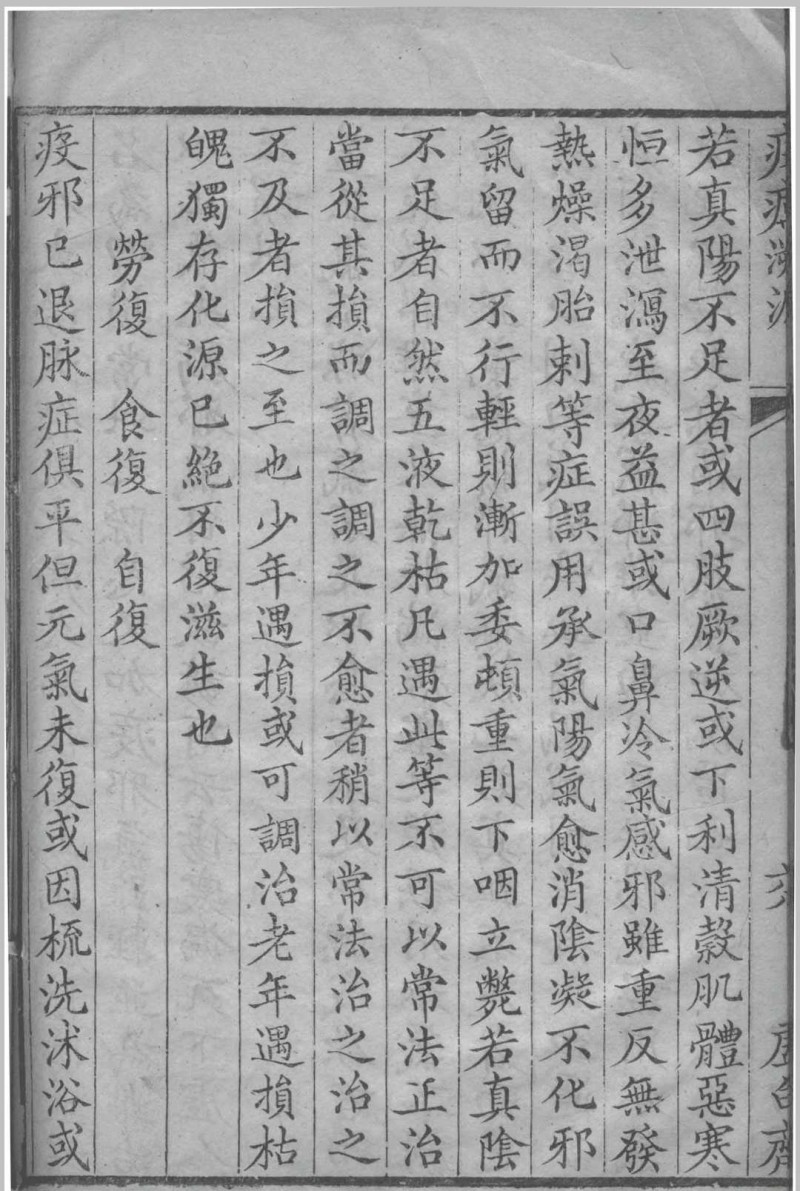 若真陽不足者或四肢厥逆或下利清穀肌體惡寒
恒多泄瀉至夜益甚或口鼻冷氣感邪雖重反無發
熱燥渴胎刺等症誤用承氣陽氣愈消陰凝不化邪
氣留而不行輕則漸加委頓重則下咽立斃若真陰
不足者自然五液乾枯凡遇此等不可以常法正治
當從其損而調之調之不愈者稍以常法治之治之
不及者損之至也少年遇損或可調治老年遇損枯
魄獨存化源已絕不復滋生也
勞復　食復　自復
疫邪已退脉症俱平但元氣未復或因梳洗沐浴或